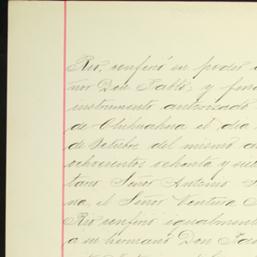 Rio, confirió su poder
nor Don Pablo, y fen
instrumento autorizado
de Chihuahua el dia
de Octubre del mismo a
ochocientos ochenta y
tario Señor Antonio
na, el Señor Ventura
Rio confirió igualment
a su hermano Don